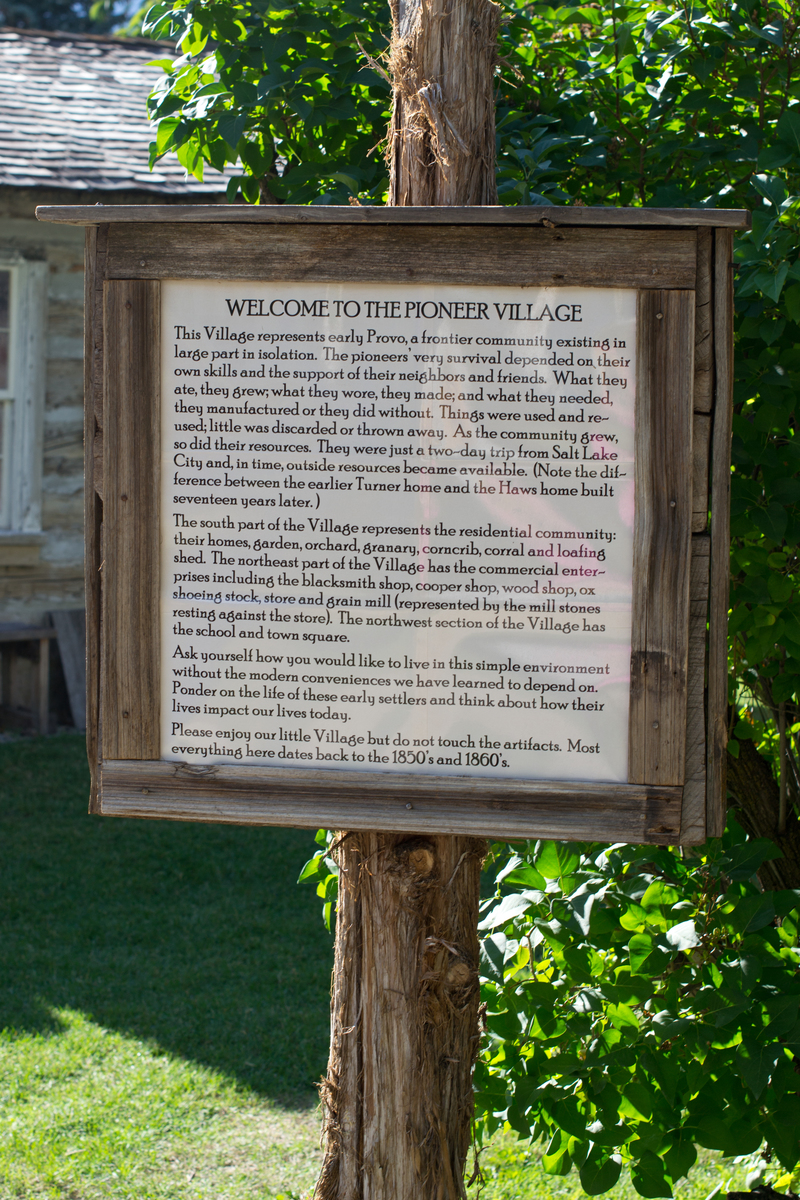 WELCOME TO THE PIONEER VILLAGE
This Village represents early Provo, a frontier community existing in
large part in isolation. The pioneers' very survival depended on their
own skills and the support of their neighbors and friends. What they
ate, they grew; what they wore, they made; and what they needed,
they manufactured or they did without. Things were used and re-
used; little was discarded or thrown away. As the community grew,
so did their resources. They were just a two-day trip from Salt Lake
City and, in time, outside resources became available. (Note the dif-
ference between the earlier Turner home and the Haws home built
seventeen years later.)
The south part of the Village represents the residential community:
their homes, garden, orchard, granary, corncrib, corral and loafing
shed. The northeast part of the Village has the commercial enter-
prises including the blacksmith shop, cooper shop, wood shop, ox
shoeing stock, store and grain mill (represented by the mill stones
resting against the store). The northwest section of the Village has
the school and town square.
Ask yourself how you would like to live in this simple environment
without the modern conveniences we have learned to depend on.
Ponder on the life of these early settlers and think about how their
lives impact our lives today.
Please enjoy our little Village but do not touch the artifacts. Most
everything here dates back to the 1850's and 1860's.